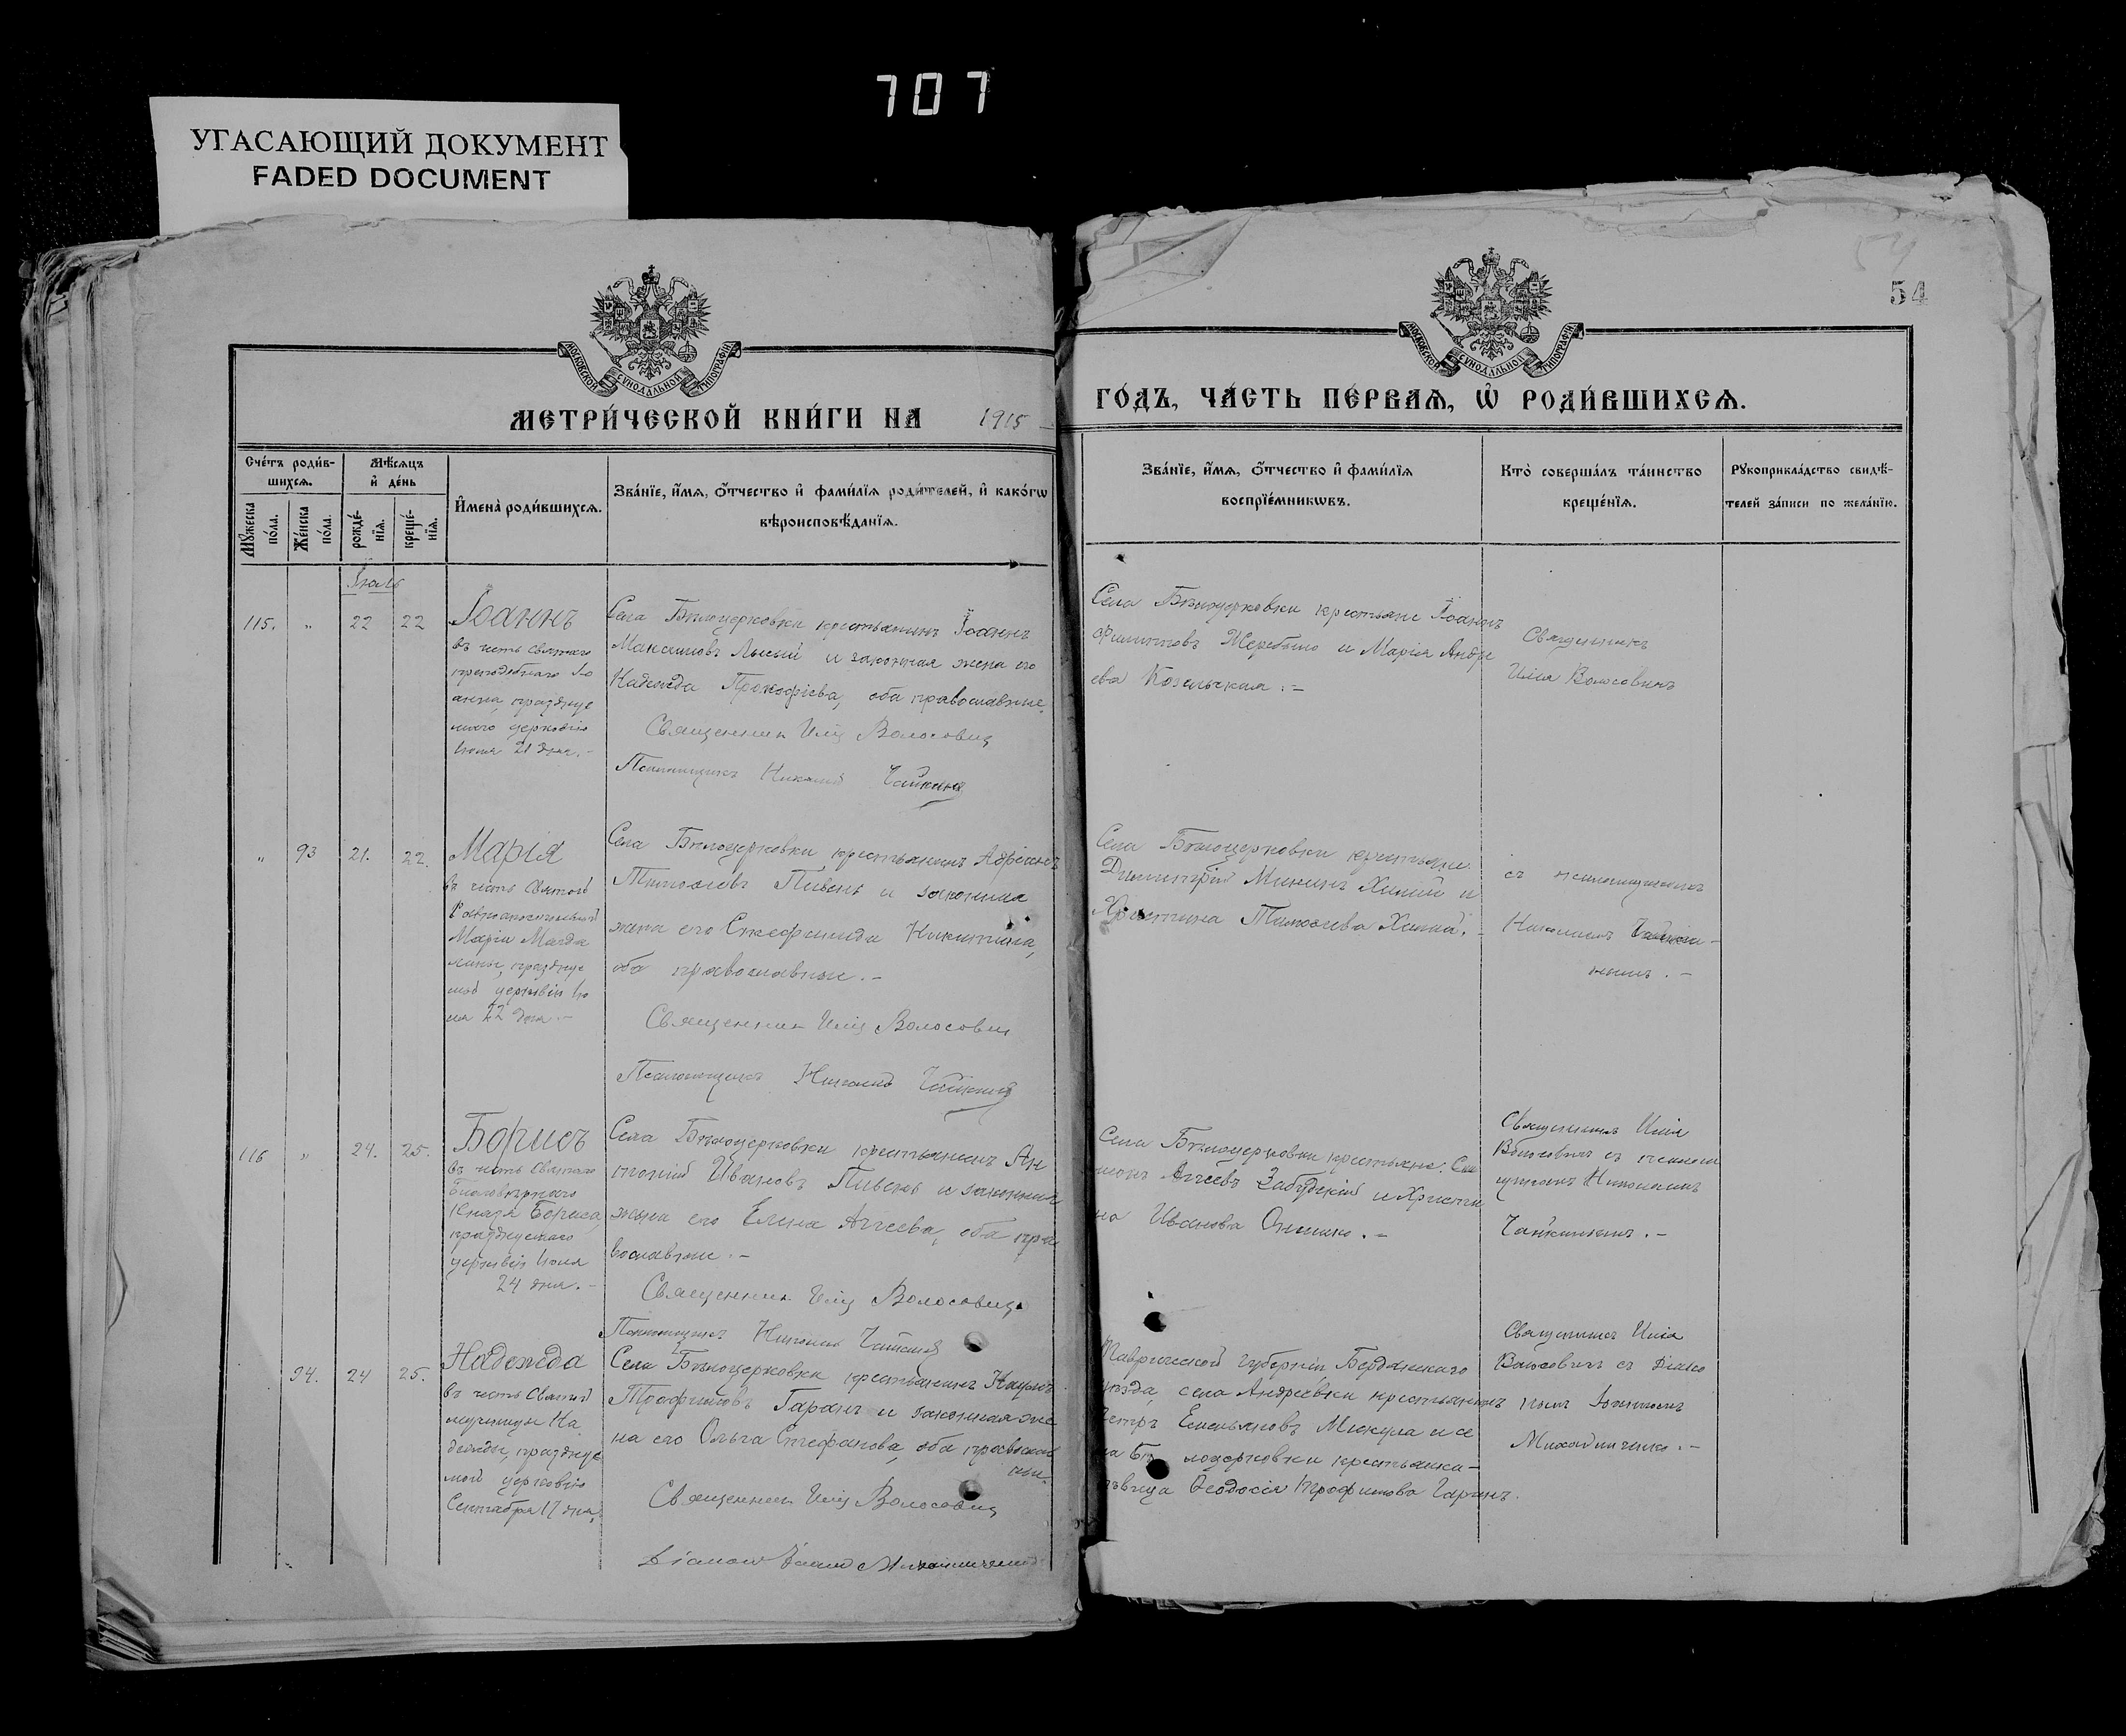 707
УГАСАЮЩИЙ ДОКУМЕНТ
FADED DOCUMENT
54
54
МОСКОВСКОЙ СѴНОДАЛЬНОЙ ТИПОГРАФІИ
МОСКОВСКОЙ СѴНОДАЛЬНОЙ ТИПОГРАФІИ
МЕТРИ́ЧЕСКОЙ КНИ́ГИ НА 1915
ГО́ДЪ, ЧА́СТЬ ПЕ́РВАѦ, Ѡ҆ РОДИ́ВШИХСѦ.
Сче́тъ роди́в-
шихсѧ.
Мꙋ́жеска по́ла.
Же́нска по́ла.
Мѣ́сѧцъ
и҆ де́нь
рожде́-
нїѧ.
креще́-
нїѧ.
И҆мена̀ роди́вшихсѧ.
Зва́нїе, и҆́мѧ, ѻ҆́тчество и҆ фами́лїѧ роди́телей, и҆ како́гѡ
вѣроисповѣ́данїѧ.
Зва́нїе, и҆́мѧ, ѻ҆́тчество и҆ фами́лїѧ
воспрїе́мникѡвъ.
Кто̀ соверша́лъ та́инство
креще́нїѧ.
Рꙋкоприкла́дство свидѣ́-
телей за́писи по жела́нїю.
115. " 22 22
Іоаннъ
въ честь святаго
преподобнаго Іо
анна, праздnуе
маго церковію
Іюля 21 дня.-
Села Бѣлоцерковки крестьянинъ Іоаннъ
Максимовъ Лысый и законная жена его
Надежда Прокофіева, оба православные.
Священник Илія Волосович
Псаломщикъ Николай Чайкинъ
Села Бѣлоцерковки крестьяне Іоаннъ
Филипповъ Жеребыло и Марія Андре
ева Козельская.-
Священникъ
Илія Волосовичъ
" 93 21. 22.
Марія
въ честь Святой
Равноапостольной
Маріи Магда
лины, празднуе
мой церковію Ію
ля 22 дня.-
Села Бѣлоцерковки крестьянинъ Адріанъ
Тимофеевъ Пивень и законная
жена его Стефанида Никитина,
оба православные.-
Священник Илія Волосович
Псаломщикъ Николай Чайкинъ
Села Бѣлоцерковки крестьяне
Димитрій Мининъ Хилий и
Христина Тимофеева Хилий.-
съ псаломщикомъ
Николаемъ Чайки-
нымъ.-
116 " 24. 25.
Борисъ
въ честь Святаго
Благовѣрнаго
Князя Бориса,
празднуемаго
церковію Іюля
24 дня.-
Села Бѣлоцерковки крестьянинъ Ан
тоній Ивановъ Пивень и законная
жена его Елена Агѣева, оба пра
вославные.-
Священник Илія Волосович
Псаломщикъ Николай Чайкинъ
Села Бѣлоцерковки крестьяне: Си
меонъ Агѣевъ Забудскій и Христи
на Иванова Онишко.-
Священникъ Илія
Волосовичъ съ псалом
щикомъ Николаемъ
Чайкинымъ.-
94. 24 25.
Надежда
въ честь Святой
мученицы На
дежды, празднуе
мой церковію
Сентября 17 дня.
Села Бѣлоцерковки крестьянинъ Наумъ
Трофимовъ Гаранъ и законная же
на его Ольга Стефанова, оба православ
ные.
Священник Илія Волосович
Діаконъ Іоаннъ
Таврической губерніи Бердянскаго
уѣзда, села Андреевки крестьянинъ
Петръ Емельяновъ Микула и се
ла Бѣлоцерковки крестьянка-
дѣвица Ѳеодосія Трофимова Гаранъ.
Священникъ Илія
Волосовичъ съ Діако
номъ Іоанномъ